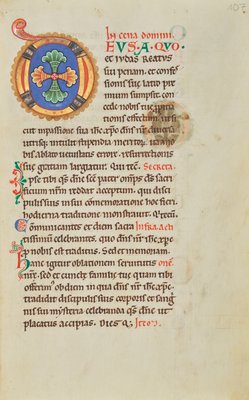 10
In cena domini.
EUS. A QUO.
et iudas reatus
sui penam. et confes
sionis sue latro pre
mium sumpsit. con
cede nobis tue pitia
tionis effectum. ut
sicut in passione sua ihc xpc dns nr diversa
utrisq; intulit stipendia meritor. ita no
bis ablato vetustatis errore. resurrectionis
sue gratiam largiatur. Qui tecu. Secreta.
Ipse tibi qs dne sce pater omps ds. sacri
ficium nrm reddat acceptum. qui disci
pulis suis in sui commemoratione hoc fieri
hodierna traditione monstravit. Q tecu.
Communicantes et diem sacra Infra Acti
tissimu celebrantes. quo dns nr ihc xpc
pro nobis est traditus. Sed et memoriam.
Hanc igitur oblationem servitutis one
nre. sed et cuncte familie tue quam tibi
offerim' ob diem in qua dns nr ihc xpc
tradidit discipulis suis corporis et sangui
nis sui mysteria celebranda qs dne ut
placatus accipias. Dies q; Item.